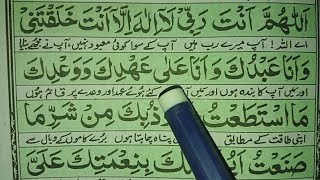 اَللّٰهُمَّ اَنْتَ رَبِّیْ لَاۤ اِلٰهَ اِلَّاۤ اَنْتَ خَلَقْتَنِیْ
اے اللہ! آپ میرے رب ہیں آپ کے سوا کوئی معبود نہیں، آپ نے مجھے
وَاَنَا عَبْدُكَ وَاَنَا عَلٰی عَهْدِكَ وَوَعْدِكَ
اور میں آپ کا بندہ ہوں اور میں آپ سے کئے ہوئے عہد اور وعدے پر قائم ہوں
مَا اسْتَطَعْتُ بِكَ مِنْ شَرِّ مَا
اپنی طاقت کے مطابق پناہ چاہتا ہوں بُرے کاموں کے وبال سے
صَنَعْتُ لَكَ بِنِعْمَتِكَ عَلَیَّ